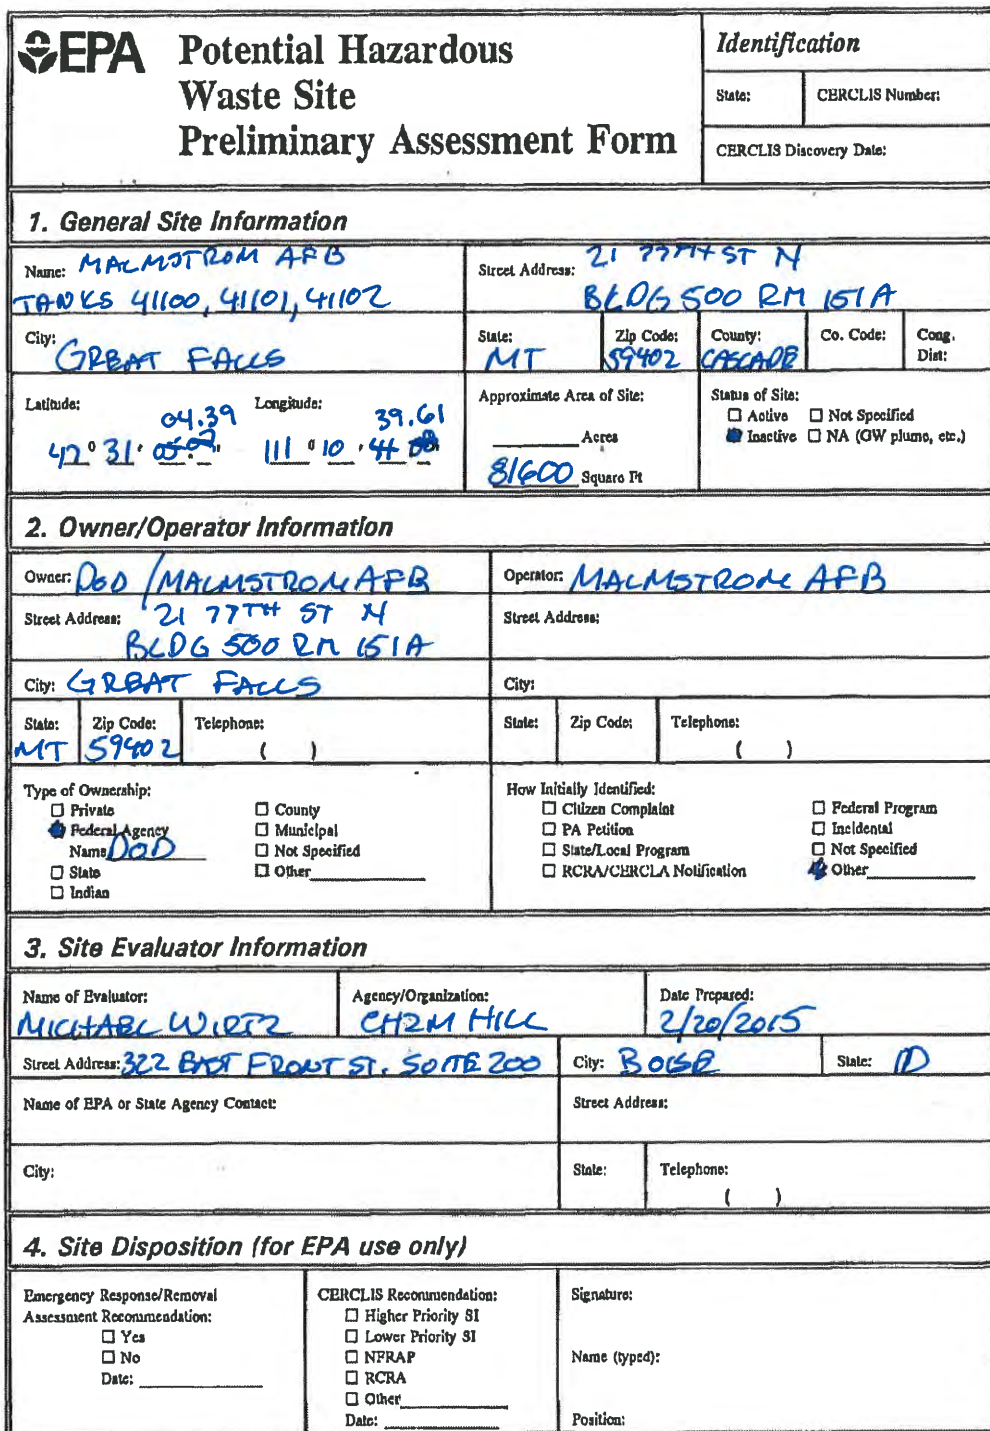 EPA
Potential Hazardous
Waste Site
Preliminary Assessment Form
Identification
State:
CERCLIS Number:
CERCLIS Discovery Date:
1. General Site Information
Name: MALMSTROM AFB
TANKS 41100, 41101, 41102
Street Address: 21 77TH ST N
BLDG 500 RM 151A
City: GREAT FALLS
State: MT
Zip Code: 59402
County: CASCADE
Co. Code:
Cong. Dist:
Latitude: 04.39
47° 31'
Longitude: 39.61
111° 10'
Approximate Area of Site:
Acres
81600 Square Ft
Status of Site:
Active Not Specified
Inactive NA (GW plume, etc.)
2. Owner/Operator Information
Owner: DOD / MALMSTROM AFB
Operator: MALMSTROM AFB
Street Address: 21 77TH ST N
BLDG 500 RM 151A
Street Address:
City: GREAT FALLS
City:
State: MT
Zip Code: 59402
Telephone:
( )
State:
Zip Code:
Telephone:
( )
Type of Ownership:
Private
Federal Agency
Name DOD
State
Indian
County
Municipal
Not Specified
Other
How Initially Identified:
Citizen Complaint
PA Petition
State/Local Program
RCRA/CERCLA Notification
Federal Program
Incidental
Not Specified
Other
3. Site Evaluator Information
Name of Evaluator:
MICHAEL WIRTZ
Agency/Organization:
CH2M HILL
Date Prepared:
2/20/2015
Street Address: 322 EAST FRONT ST. SUITE 200
City: BOISE
State: ID
Name of EPA or State Agency Contact:
Street Address:
City:
State:
Telephone:
( )
4. Site Disposition (for EPA use only)
Emergency Response/Removal
Assessment Recommendation:
Yes
No
Date:
CERCLIS Recommendation:
Higher Priority SI
Lower Priority SI
NFRAP
RCRA
Other
Date:
Signature:
Name (typed):
Position: